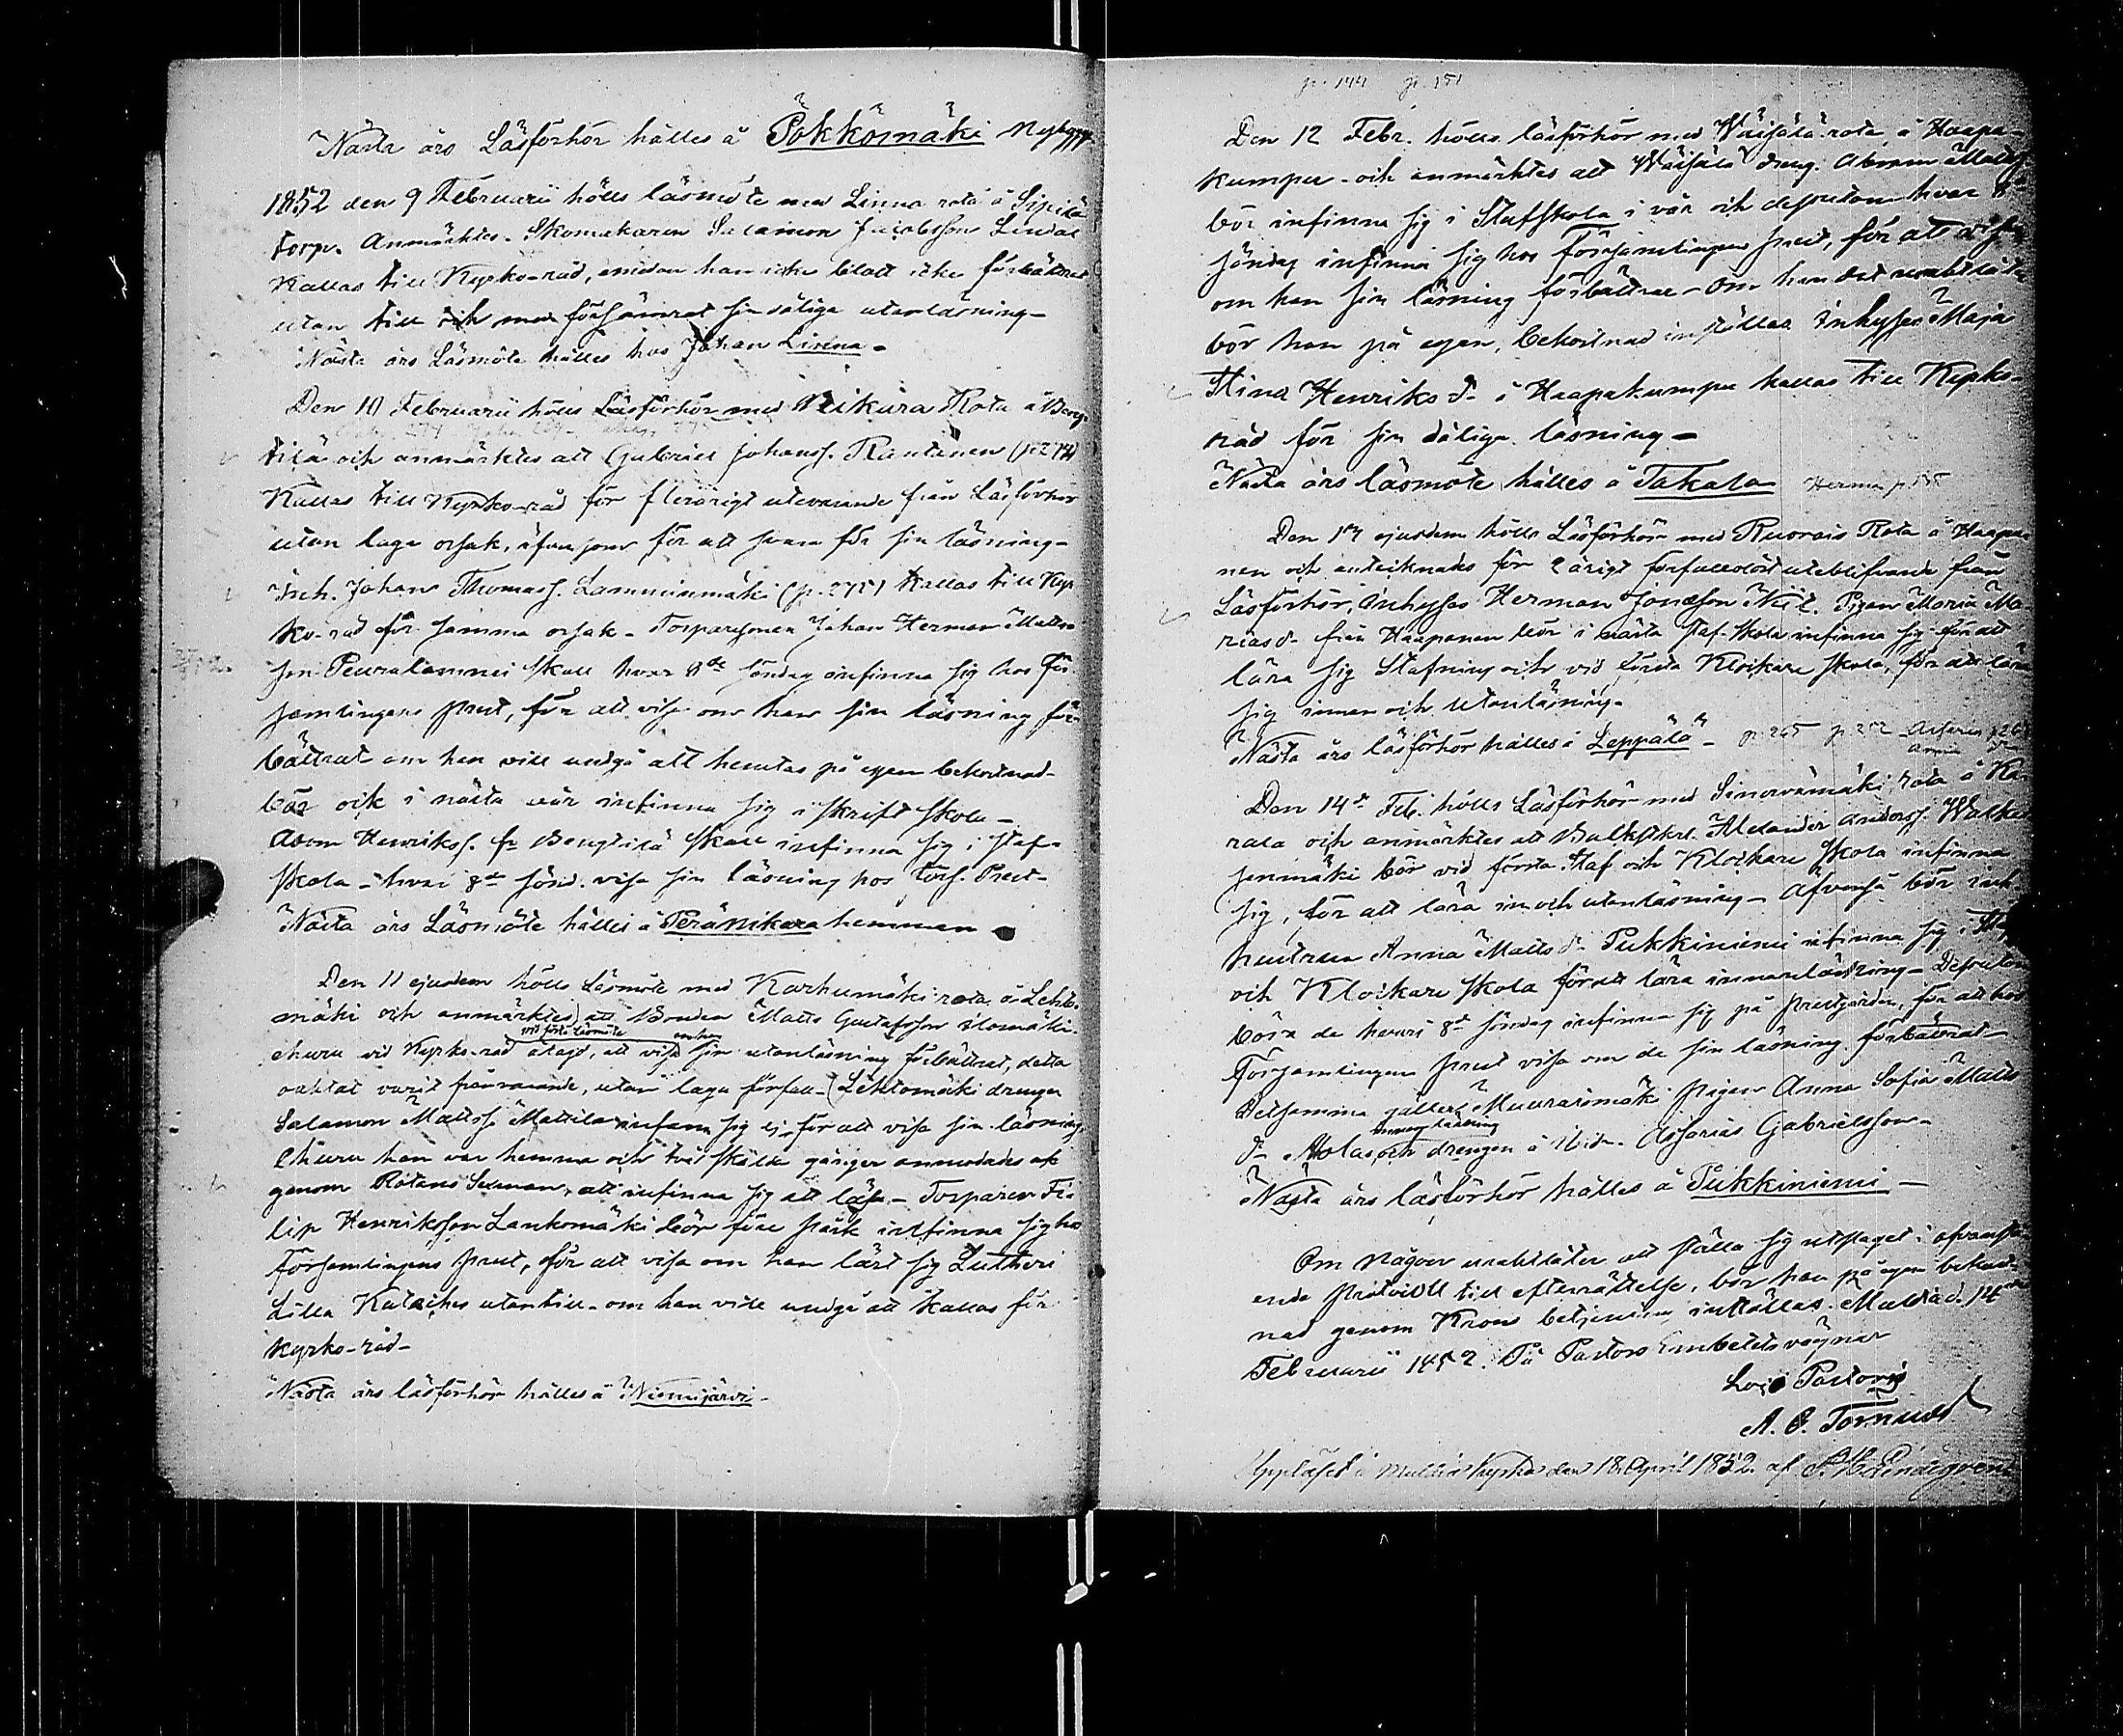 Nästa års Läsförhör hålles å Pökkömäki Nybygge
1852 den 9 Februarii hölls läsmöte med Linna rota å Sipilä
torp. Anmärktes. Skomakaren Salamon Jacobsson Lindal
Kallas till Kyrko-råd, emedan han icke blott icke förbättrat
utan till och med försämrat sin dåliga utanläsning-
Nästa års Läsmöte hålles hos Johan Linna-
Den 10 Februarii hölls Läsförhör med Neikura Rota å Beng-
tilä och anmärktes att Gabriel Johanss. Rantanen (p. 274)
Kallas till Kyrko-råd för flerårigt utevarande från Läsförhör
utan laga orsak, äfvensom för att svara för sin läsning-
Inh. Johan Thomass. Lamminmäki (p. 275) Kallas till Kyr-
ko-råd för samma orsak- Torparsonen Johan Herman Matts-
son Peuralammi skall hvar 8de söndag infinna sig hos För-
samlingens prest, för att visa om han sin läsning för-
bättrat om han vill undgå att hemtas på egen bekostnad-
bör ock i nästa vår infinna sig i skrift skola-
Adam Henrikss. fr Bengtilä skall infinna sig i staf-
skola - hvar 8de sönd. visa sin läsning hos Förs. Prest-
Nästa års Läsmöte hålles å Peränikara hemman
Den 11 ejusdem hölls läsmöte med Karhumäki rota å Lehto-
mäki och anmärktes att Bonden Matts Gustafsson Alomäki
vid förra läsmöte om han
ehuru vid Kyrko-råd ålagd, att visa sin utanläsning förbättrat, detta
oaktat varit frånvarande, utan laga förfall- (Lehtomäki drengen
Salamon Mattss. Mattila infann sig ej för att visa sin läsning
Ehuru han var hemma och två särskilda gånger anmodades af
genom Rotans Sexman, att infinna sig att läsa- Torparen Fi-
lip Henriksson Laukomäki bör före påsk infinna sig hos
Församlingens prest, för att visa om han lärt sig Lutheri
Lilla Kateches utantill- om han vill undgå att kallas för
Kyrko-råd-
Nästa års läsförhör hålles å Niemijärvi-
p. 144 p. 151
Den 12 Febr. hölls läsförhör med Wäisälä rota å Haapa-
kumpu- och anmärktes att Wäisälä dreng. Abram Matts.
bör infinna sig i Stafskola i vår och dessutom hvar 8de
söndag infinna sig hos Församlingens prest, för att visa
om han sin läsning förbättrar- Om han det uraktlåter
bör han på egen bekostnad inställas Inhyses Maja
Stina Henriks d. å Haapakumpu kallas till Kyrko-
råd för sin dåliga läsning-
Nästa års läsmöte hålles å Takala Herman p. 155
Den 13 ejusdem hölls Läsförhör med Ruorais Rota å Haapa-
nen och antecknades för 2 årigt förfallolöst uteblifvande från
Läsförhör, inhyses Herman Jonasson Piga Maria Ma-
rias d. från Haapanen bör i nästa staf-skola infinna sig för att
lära sig Stafning och vid första Klockare skola, för att lära
sig innan och utanläsning-
Nästa års läsförhör hålles å Leppälä- p. 265 p. 252 Assarias p 261
Anna
Den 14de Feb. hölls Läsförhör med Sinervämäki rota å Ka-
rala och anmärktes att Alexander Anderss. Walke-
jenmäki bör vid första Staf och Klockare skola infinna
sig, för att lära in och utanläsning- Äfvenså bör inh.
hustrun Anna Matts d. Pukkiniemi infinna sig i Staf
och Klockare skola för att lära innanläsning- Dessutom
böra de hvar 8de söndag infinna sig på prestgården, för att hos
Församlingens prest visa om de sin läsning förbättrat-
Detsamma gäller Muuraismäki pigan Anna Sofia Matts
innanläsning
d. Aholas, och drengen å ibid. Assarias Gabrielsson-
Nästa års läsförhör hålles å Pukkiniemi-
Om någon uraktlåter att ställa sig utslaget i ofvanstå-
ende Protocoll till efterrättelse, bör han på egen bekost-
nad genom Krono betjening inställas. Multia d. 14de
Februarii 1852. På Pastors Embetets vägnar
Loco Pastoris
A. O. Törnudd
Uppläset i Multia Kyrka den 18 April 1852 af